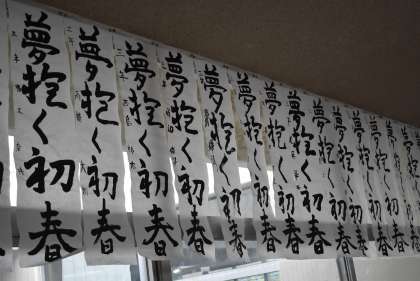 夢抱く初春
夢抱く初春
夢抱く初春
夢抱く初春
夢抱く初春
夢抱く初春
夢抱く初春
夢抱く初春
夢抱く初春
夢抱く初春
夢抱く初春
夢抱く初春
夢抱く初春